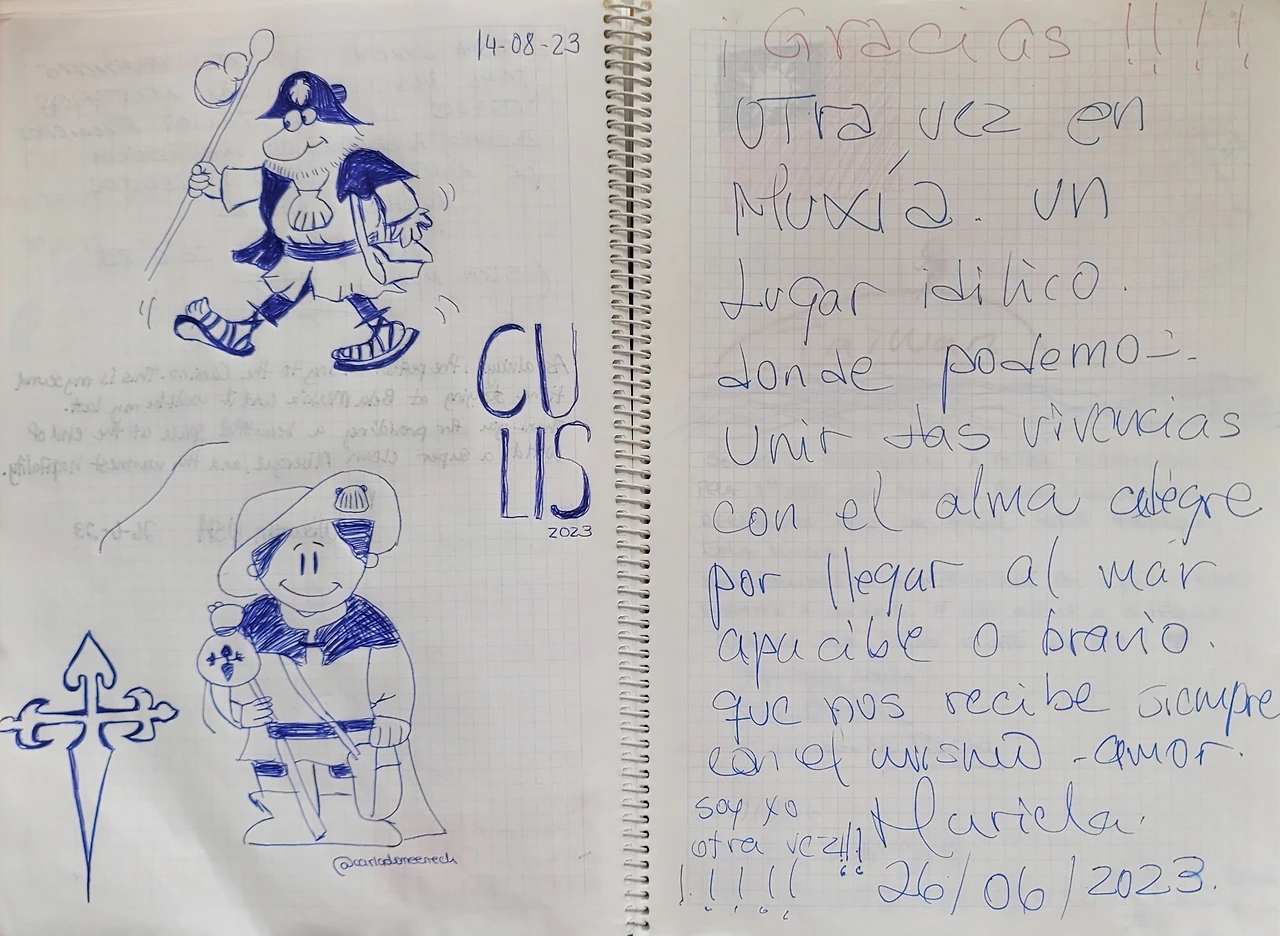 14-08-23
CU
LIS
2023
¡Gracias!!!!
Otra vez en
Muxía. un
Lugar idilico.
donde podemos.
unir las vivencias
con el alma alegre
por llegar al mar
apacible o bravio.
que nos recibe siempre
con el mismo amor.
soy yo
otra vez!!! Mariela.
!!!!! 26/06/2023.